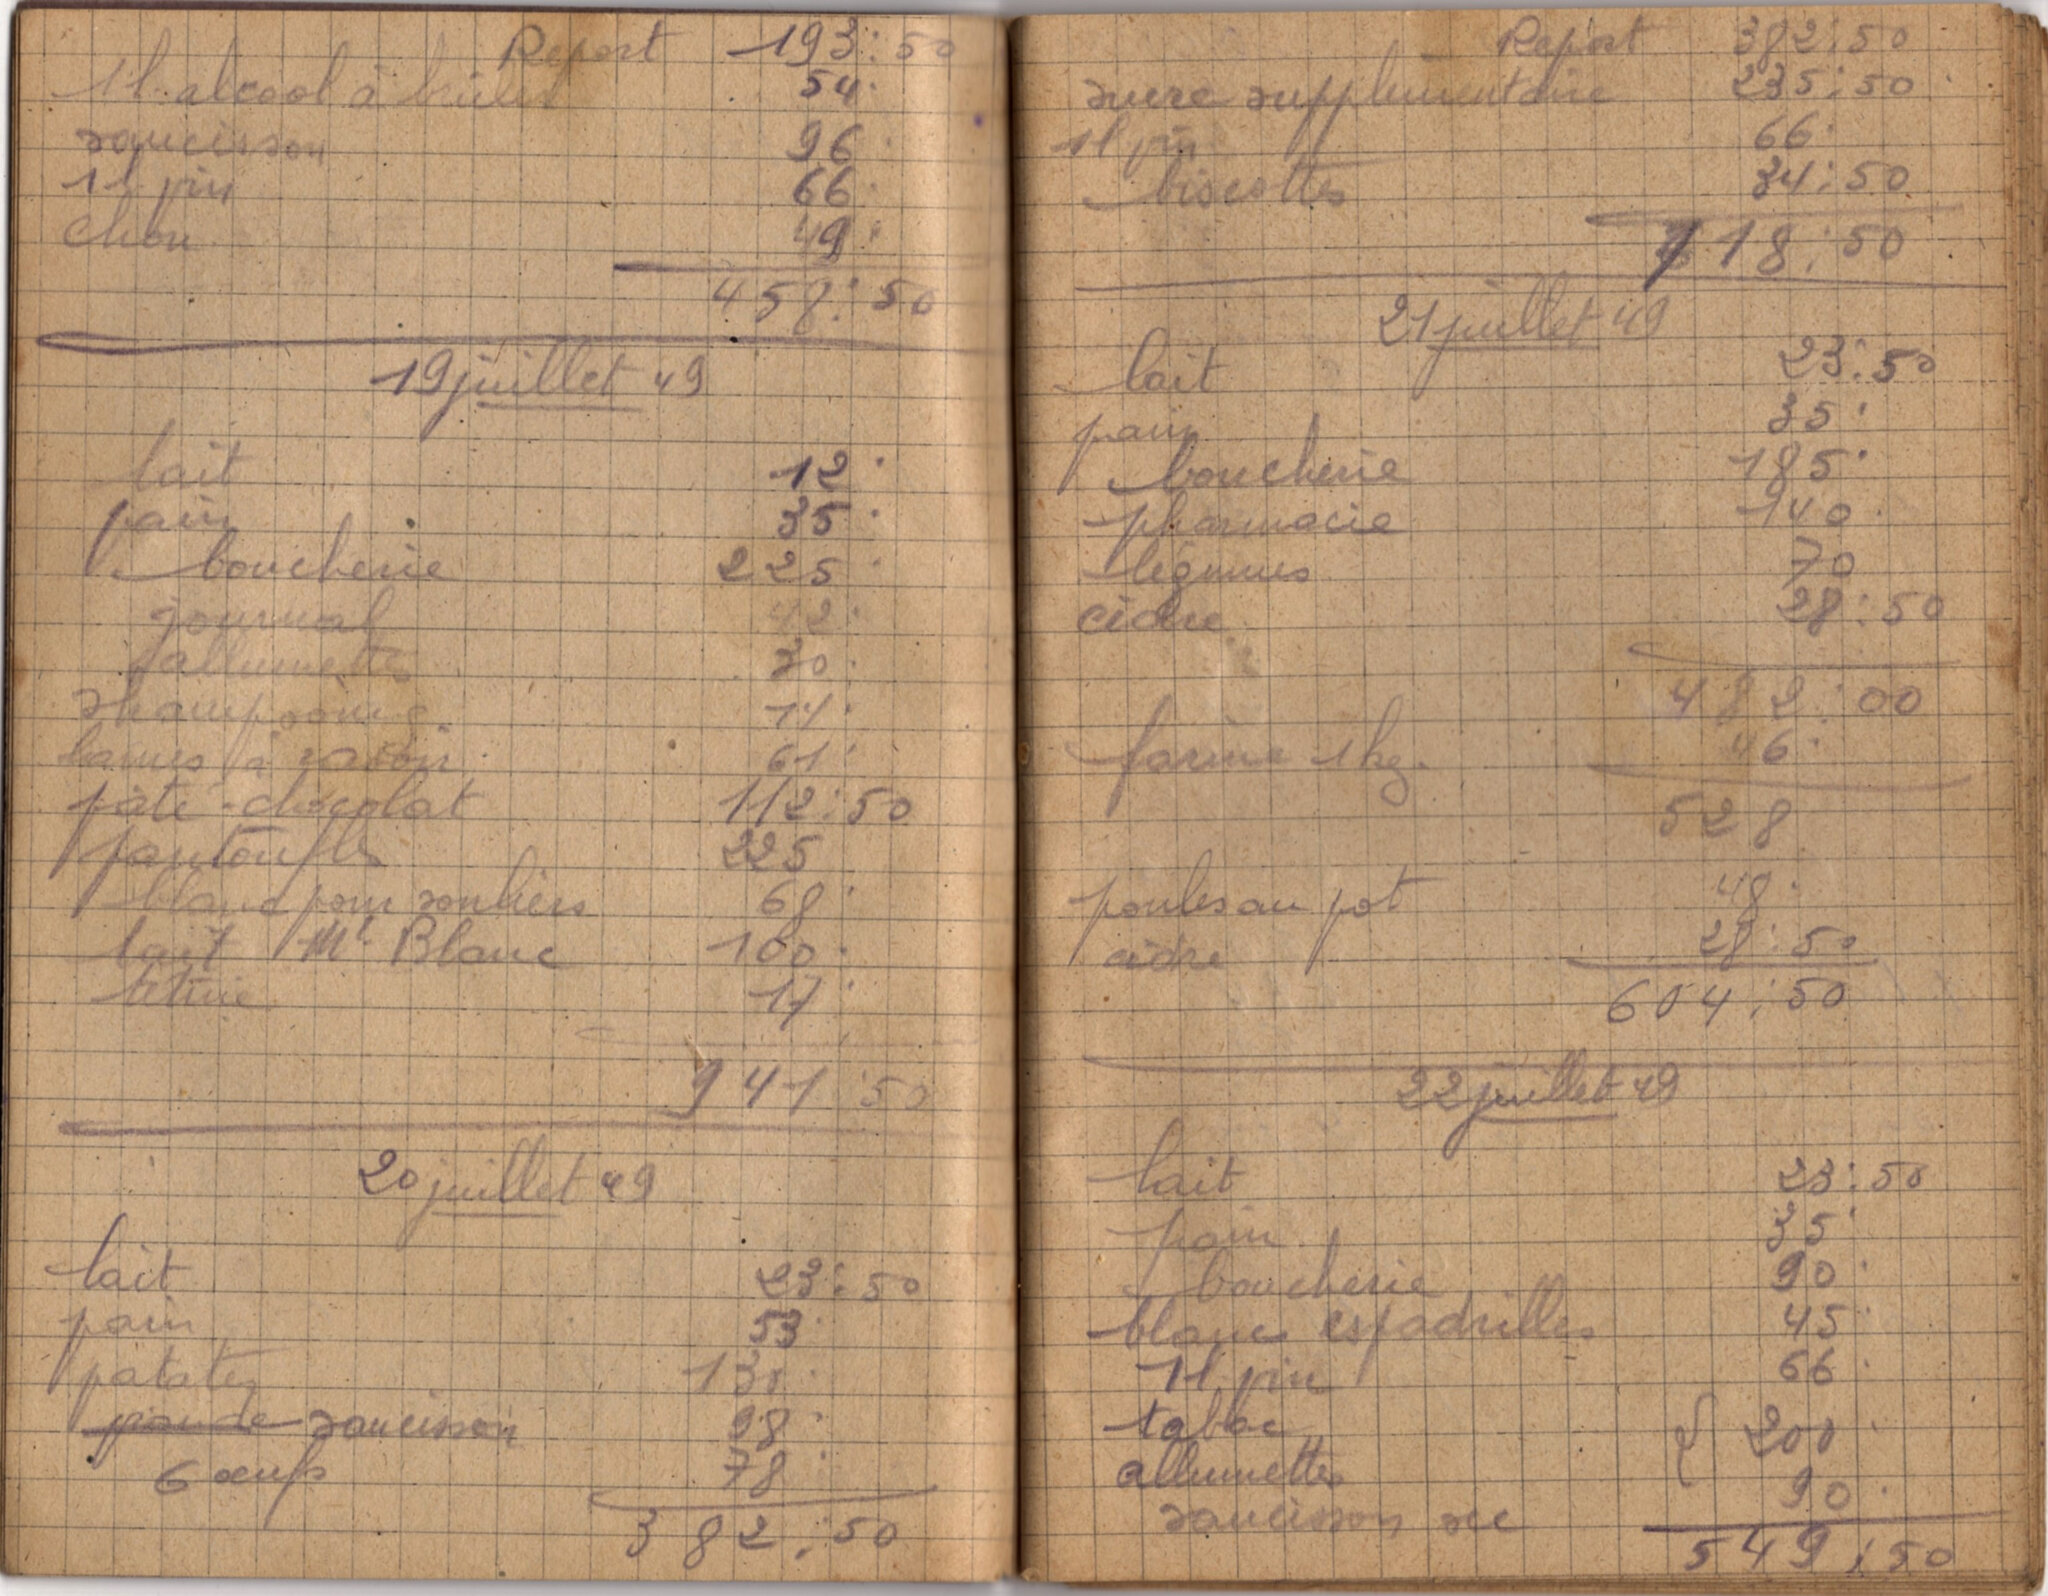 Report 193:50
1 l. alcool à brûler 54.
saucisson 96.
1 l. pin 66.
chou 49.
458:50
19 juillet 49
lait 12.
pain 35.
boucherie 225.
journal 42.
allumettes 30.
shampooing 14.
lames à rasoir 61.
pâté - chocolat 112:50
pantoufles 225
blanc pour souliers 68.
lait Mt Blanc 100.
17.
941:50
20 juillet 49
lait 23:50
pain 53.
patates 130.
viande saucisson 98.
6 œufs 78.
382:50
Report 382:50
sucre supplémentaire 235:50
1 l pin 66.
biscottes 34:50
718:50
21 juillet 49
lait 23:50
pain 35.
boucherie 185.
pharmacie 140.
légumes 70
cidre 28:50
482:00
farine 1 kg. 46.
528
poules au pot 48.
cidre 28:50
604:50
22 juillet 49
lait 23:50
pain 35.
boucherie 90.
blanc espadrilles 45.
1 l. pin 66.
tabac
allumettes 200.
saucisson sec 90.
549:50